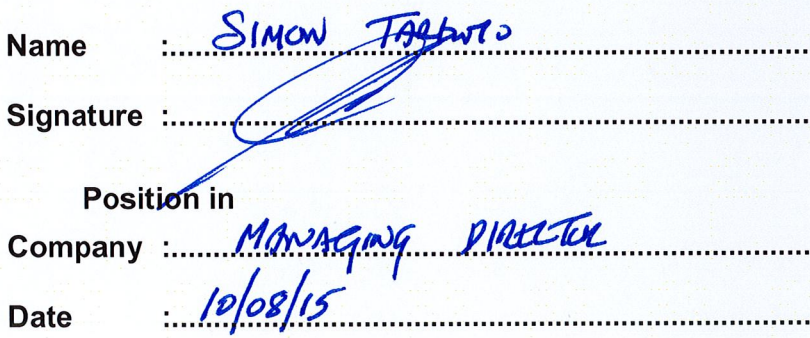 Name : SIMON
Signature :
Position in
Company : MANAGING DIRECTOR
Date : 10/08/15